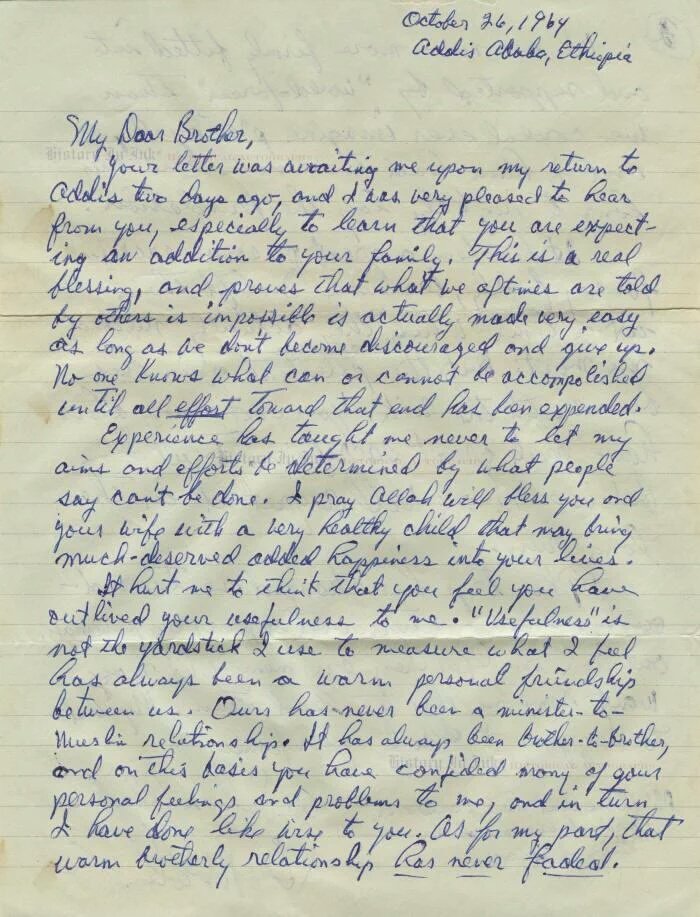 October 26, 1964
Addis Ababa, Ethiopia
My Dear Brother,
Your letter was awaiting me upon my return to
Addis two days ago, and I was very pleased to hear
from you, especially to learn that you are expect-
ing an addition to your family. This is a real
blessing, and proves that what we oftimes are told
by others is impossible is actually made very easy
as long as we don't become discouraged and give up.
No one knows what can or cannot be accomplished
until all effort toward that end has been expended.
Experience has taught me never to let my
aims and efforts be determined by what people
say can't be done. I pray Allah will bless you and
your wife with a very healthy child that may bring
much-deserved added happiness into your lives.
It hurt me to think that you feel you have
outlived your usefulness to me. "Usefulness" is
not the yardstick I use to measure what I feel
has always been a warm personal friendship
between us. Ours has never been a minister-to-
Muslim relationship. It has always been Brother-to-Brother,
and on this basis you have confided many of your
personal feelings and problems to me, and in turn
I have done like wise to you. As for my part, that
warm brotherly relationship has never faded.
History In Ink